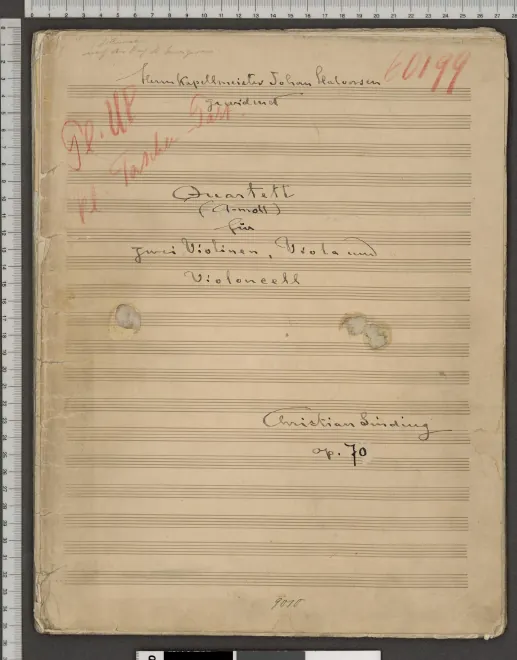 Herrn Kapellmeister Johan Halvorsen
gewidmet
60199
Pl. UP
pl. Taschen Part.
Quartett
(A-moll)
für
zwei Violinen, Viola und
Violoncell
Christian Sinding
op. 70
9015